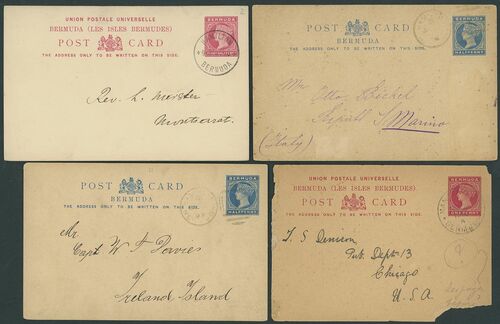 UNION POSTALE UNIVERSELLE
BERMUDA (LES ISLES BERMUDES)
POST CARD
THE ADDRESS ONLY TO BE WRITTEN ON THIS SIDE.
BERMUDA
Rev. L.
Montserrat.
POST CARD
BERMUDA
THE ADDRESS ONLY TO BE WRITTEN ON THIS SIDE.
BERMUDA
HALFPENNY
Mr
Otto Bickel
S. Marino
(Italy)
POST CARD
BERMUDA
THE ADDRESS ONLY TO BE WRITTEN ON THIS SIDE.
BERMUDA
HALFPENNY
Mr.
Capt W F Davies
Ireland Island
UNION POSTALE UNIVERSELLE
BERMUDA (LES ISLES BERMUDES)
POST CARD
THE ADDRESS ONLY TO BE WRITTEN ON THIS SIDE.
BERMUDA
ONE PENNY
T. S. Denison
Pub. Dept. 13
Chicago
U. S. A.